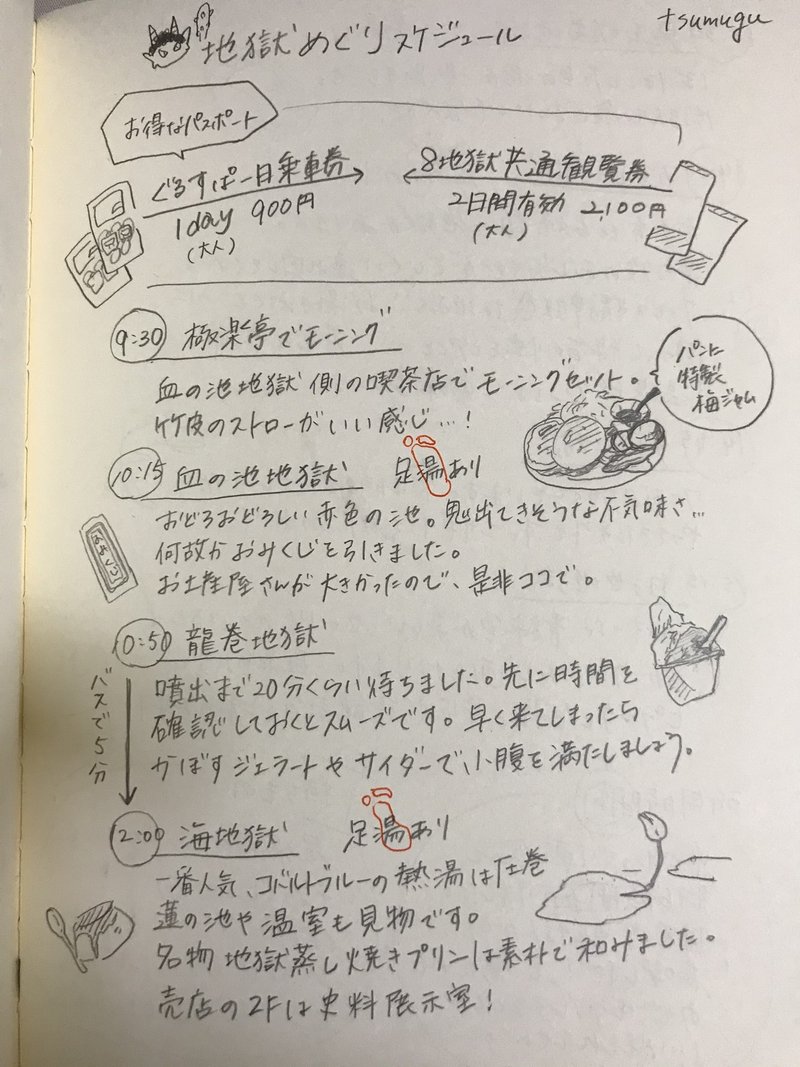 tsumugu
地獄めぐりスケジュール
お得なパスポート
ぐるすぱ一日乗車券
1day 900円
(大人)
8地獄共通観覧券
2日間有効 2,100円
(大人)
9:30 極楽亭でモーニング
血の池地獄側の喫茶店でモーニングセット。
竹皮のストローがいい感じ…!
パンに
特製
梅ジャム
10:15 血の池地獄 足湯あり
おどろおどろしい赤色の池。鬼出てきそうな不気味さ…
何故かおみくじを引きました。
お土産屋さんが大きかったので、是非ココで。
おみくじ
10:50 龍巻地獄
噴出まで20分くらい待ちました。先に時間を
確認しておくとスムーズです。早く来てしまったら
かぼすジェラートやサイダーで、小腹を満たしましょう。
バスで5分
12:00 海地獄 足湯あり
一番人気、コバルトブルーの熱湯は圧巻
蓮の池や温室も見物です。
名物 地獄蒸し焼きプリンは素朴で和みました。
売店の2Fは史料展示室!